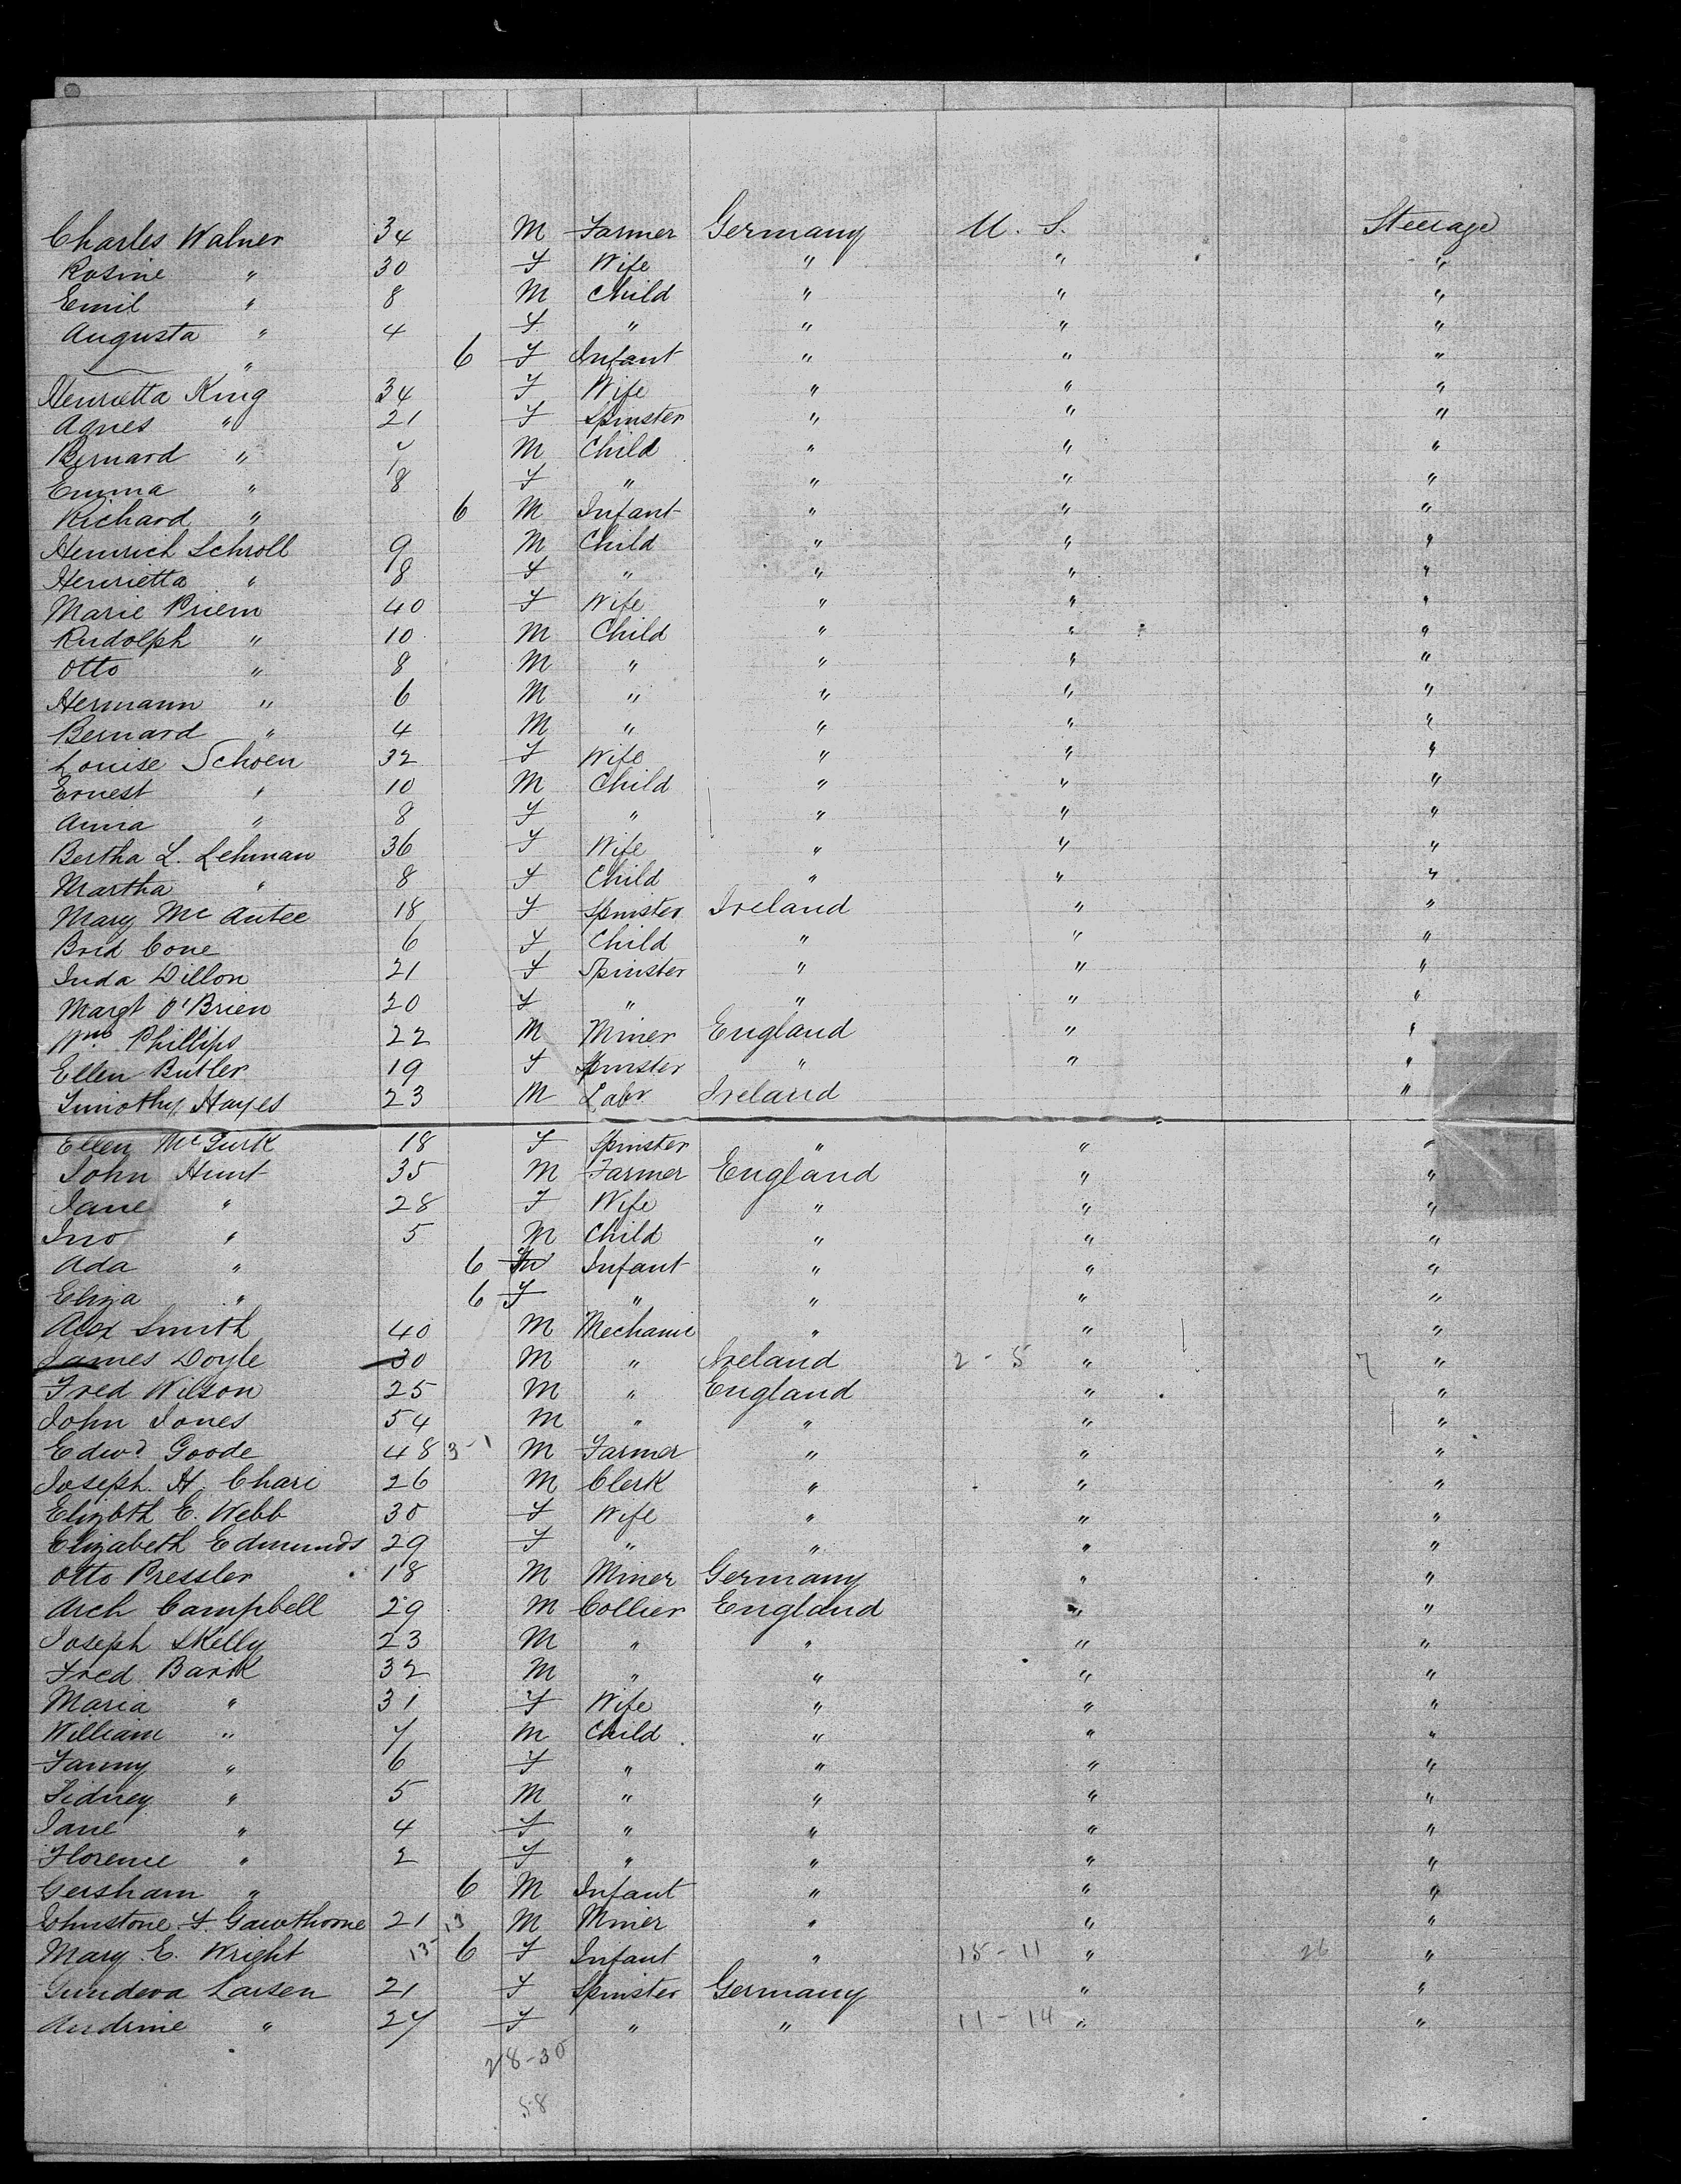 Charles Walner 34 M Farmer Germany U. S. Steerage
Rosine " 30 F Wife " " "
Emil " 8 M Child " " "
Augusta " 4 F " " " "
" 6 F Infant " " "
Henrietta King 34 F Wife " " "
Agnes " 21 F Spinster " " "
Bernard " M Child " " "
Emma " 8 F " " " "
Richard " 6 M Infant " " "
Heinrich Schroll 9 M Child " " "
Henrietta " 8 F " " " "
Marie Priem 40 F Wife " " "
Rudolph " 10 M Child " " "
Otto " 8 M " " " "
Hermann " 6 M " " " "
Bernard " 4 M " " " "
Louise Schoen 32 F Wife " " "
Ernest " 10 M Child " " "
Anna " 8 F " " " "
Bertha L. Lehman 36 F Wife " " "
Martha " 8 F Child " " "
Mary Mc Antee 18 F Spinster Ireland " "
Brid Cone 6 F Child " " "
Inda Dillon 21 F Spinster " " "
Margt O'Brien 20 F " " " "
Wm Phillips 22 M Miner England " "
Ellen Butler 19 F Spinster " " "
Timothy Hayes 23 M Labr Ireland "
Ellen McGurk 18 F Spinster " " "
John Hunt 35 M Farmer England " "
Jane " 28 F Wife " " "
Jno " 5 M Child " " "
Ada " 6 Infant " " "
Eliza " 6 F " " " "
Alex Smith 40 M Mechanic " " "
James Doyle 30 M " Ireland 2 - 5 " 7 "
Fred Wilson 25 M " England " "
John Jones 54 M " " " "
Edwd Goode 48 3-1 M Farmer " " "
Joseph H. Chari 26 M Clerk " " "
Elizbth E. Webb 30 F Wife " " "
Elizabeth Edmunds 29 F " " " "
Otto Pressler 18 M Miner Germany " "
Arch Campbell 29 M Collier England " "
Joseph Skelly 23 M " " " "
Fred Bark 32 M " " " "
Maria " 31 F Wife " " "
William " 7 M Child " " "
Fanny " 6 F " " " "
Sidney " 5 M " " " "
Jane " 4 F " " " "
Florence " 2 F " " " "
Gersham " 6 M Infant " " "
Johnstone F. Gawthorne 21 13 M Miner " " "
Mary E. Wright 15 6 F Infant " 15-11 " 26 "
Gundera Larsen 21 F Spinster Germany " "
Andrine " 27 F " " 11 - 14 " "
28-30
58